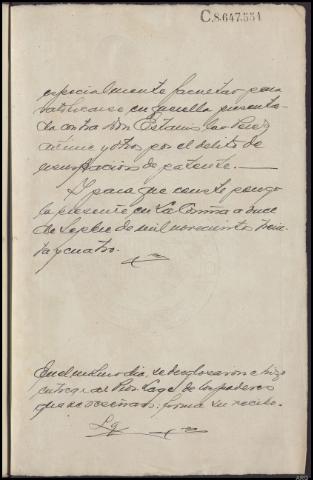 C.8.647.551
especialmente facultar para
ratificarse en querella presenta-
da contra Don Estanislao Perez
y otros por el delito de
usurpacion de patente.
Y para que conste pongo
la presente en La Coruña a once
de Sepbre de mil novecientos trein
ta y cuatro.
En el mismo dia, se desglosaron e hizo
entrega al Pror Lage de los poderes
que se reseñan; firma su recibo.